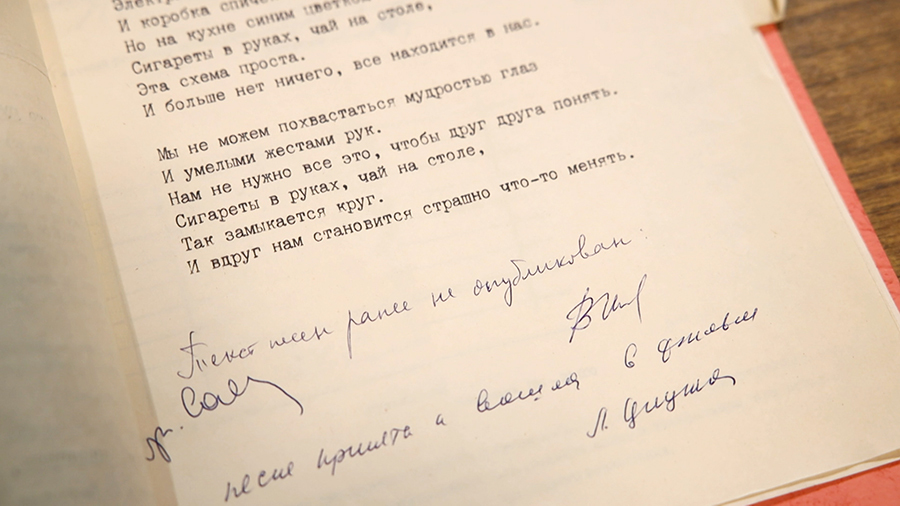 И коробка спичек
Но на кухне синим цветком
Сигареты в руках, чай на столе,
Эта схема проста.
И больше нет ничего, все находится в нас.
Мы не можем похвастаться мудростью глаз
И умелыми жестами рук.
Нам не нужно все это, чтобы друг друга понять.
Сигареты в руках, чай на столе,
Так замыкается круг.
И вдруг нам становится страшно что-то менять.
Текст песен ранее не опубликован:
песня принята и вошла в фильм